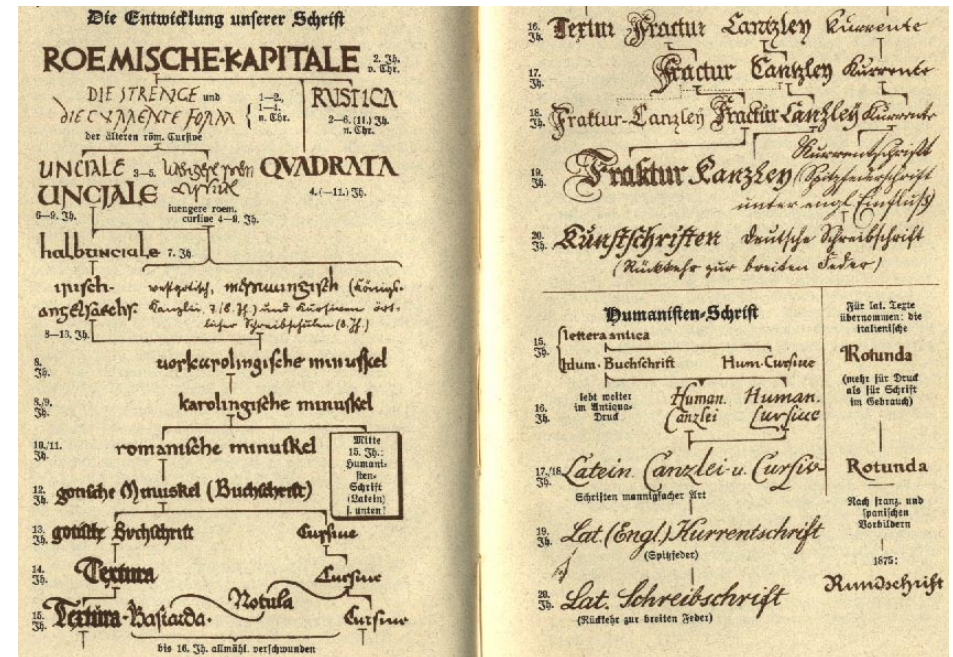 Die Entwicklung unserer Schrift
ROEMISCHE-KAPITALE 2. Jh. v. Chr.
DIE STRENGE und
DIE CURRENTE FORM
der älteren röm. Cursive
1—2., 1—4. n. Chr.
RUSTICA
2—6. (11.) Jh. n. Chr.
UNCIALE 3—5.
UNCIALE
6—9. Jh.
iuengere roem. cursive 4—9. Jh.
QVADRATA
4. (—11.) Jh.
halbunciale 7. Jh.
irisch-
angelsaechs.
8—13. Jh.
westgotisch, merowingisch (Königs-
Kanzlei, 7./8. Jh.) und Kursiven ört-
licher Schreibschulen (8. Jh.)
8. Jh. vorkarolingische minuskel
8./9. Jh. karolingische minuskel
10./11. Jh. romanische minuskel
Mitte
15. Jh.:
Humani-
sten-
Schrift
(Latein)
s. unten!
12. Jh. gotische Minuskel (Buchschrift)
13. Jh. gotische Buchschrift Cursive
14. Jh. Textura Cursive
15. Jh. Textura-Bastarda. Notula Cursive
bis 16. Jh. allmähl. verschwunden
16. Jh. Textur Fractur Cantzley Kurrente
17. Jh. Fractur Cantzley Kurrente
18. Jh. Fraktur-Canzley Fractur Canzley Kurrente
19. Jh. Fraktur Kanzley Kurrentschrift
(Spitzfederschrift
unter engl. Einfluß)
20. Jh. Kunstschriften Deutsche Schreibschrift
(Rückkehr zur breiten Feder)
Humanisten-Schrift
15. Jh. lettera antica
Hum. Buchschrift Hum. Cursive
16. Jh. lebt weiter
im Antiqua-
Druck
Human. Canzlei
Human. Cursive
17./18. Latein. Canzlei u. Cursiv
Schriften mannigfacher Art
19. Jh. Lat. (Engl.) Kurrentschrift
(Spitzfeder)
20. Jh. Lat. Schreibschrift
(Rückkehr zur breiten Feder)
Für lat. Texte
übernommen: die
italienische
Rotunda
(mehr für Druck
als für Schrift
im Gebrauch)
Rotunda
Nach franz. und
spanischen
Vorbildern
1875:
Rundschrift